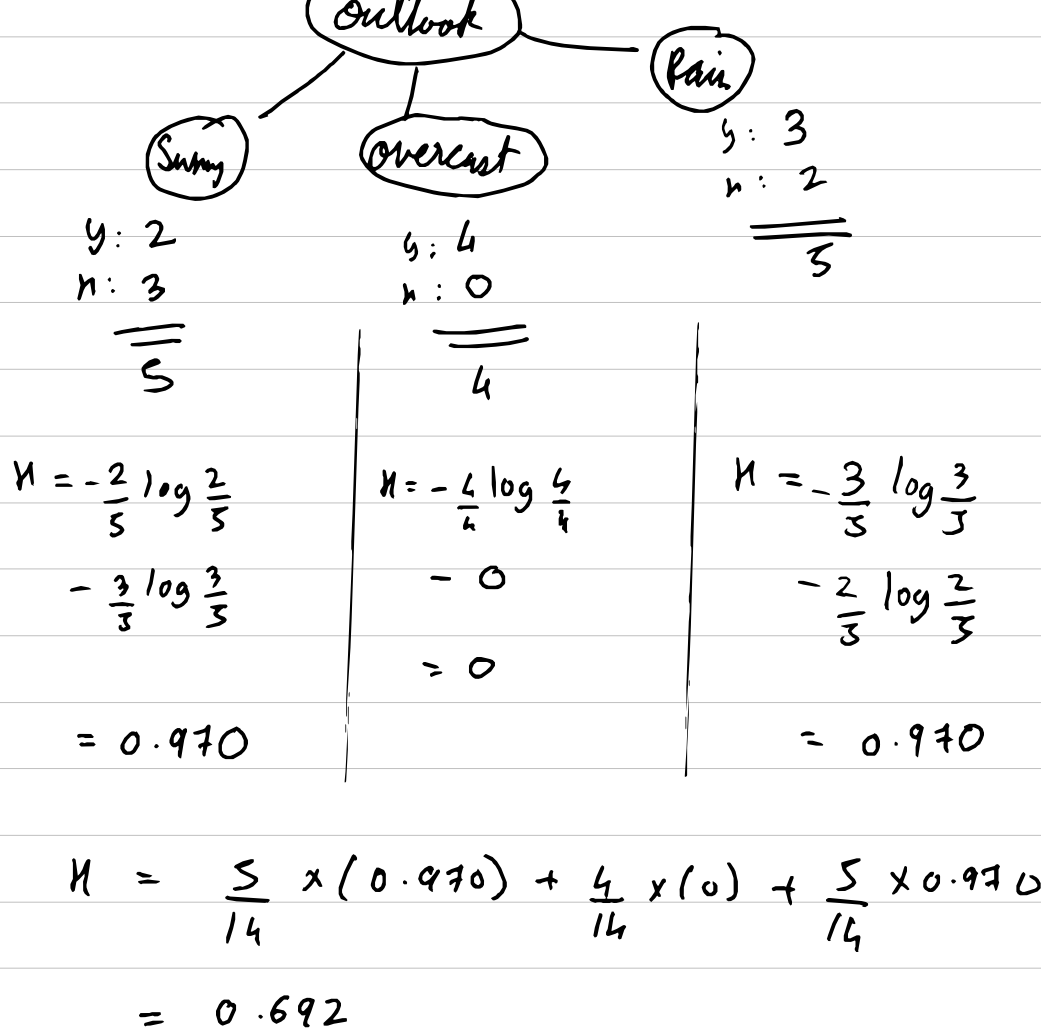 Outlook
Rain
Sunny
overcast
y: 3
n: 2
5
y: 2
n: 3
5
y: 4
n: 0
4
H = - 2/5 log 2/5
- 3/5 log 3/5
= 0.970
H = - 4/4 log 4/4
- 0
= 0
H = - 3/5 log 3/5
- 2/5 log 2/5
= 0.970
H = 5/14 x (0.970) + 4/14 x (0) + 5/14 x 0.970
= 0.692